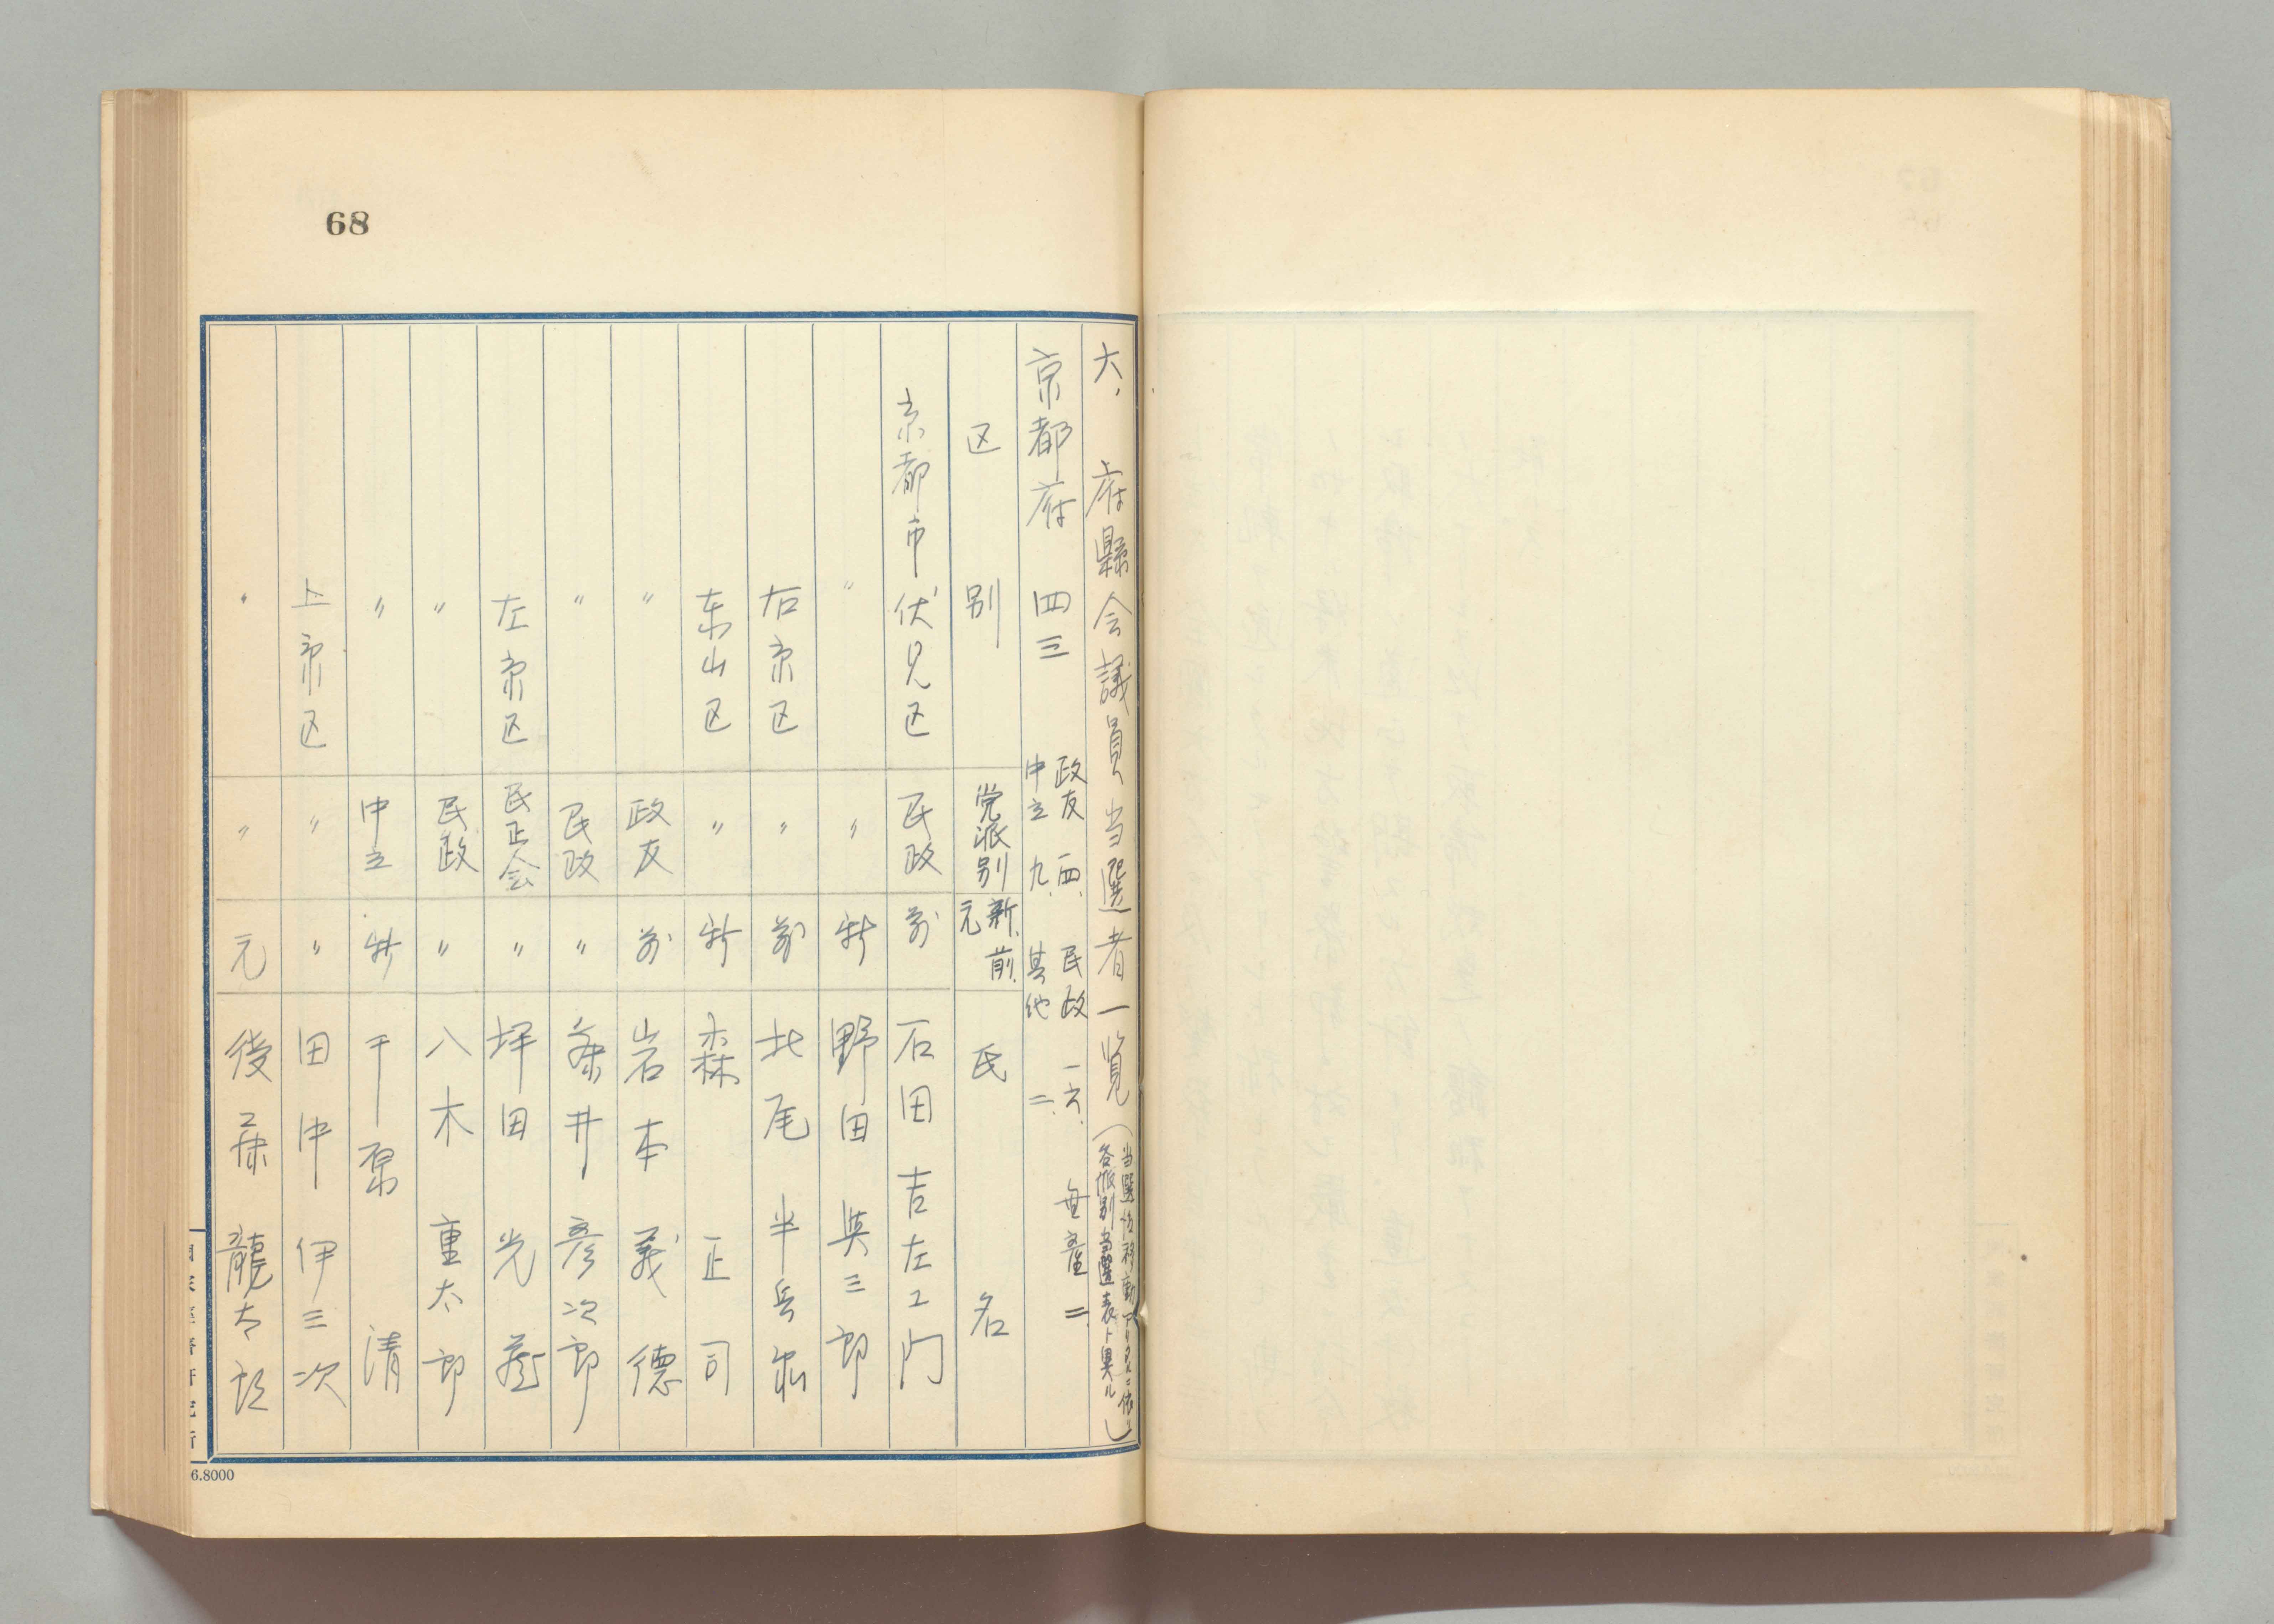 68
六、府縣会議員当選者一覧(当選後移動アリタルニ依リ各派別当選表ト異ル)
京都府 四三 政友 一四、 民政 一六、 無産 二、
中立 九、 其他 二、
区別 党派別 新、前、元 氏名
京都市伏見区 民政 前 石田吉左エ門
〃 〃 新 野田英三郎
右京区 〃 前 北尾半兵衛
東山区 〃 新 森正司
〃 政友 前 岩本義徳
〃 民政 〃 条井彦次郎
左京区 民正会 〃 坪田光蔵
〃 民政 〃 八木重太郎
〃 中立 新 千原清
上京区 〃 〃 田中伊三次
〃 〃 元 後藤龍太郎
6.8000